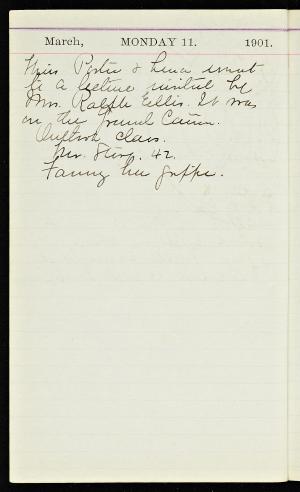 March, MONDAY 11. 1901.
Miss Porter & Lena went
to a lecture invited by
Mrs. Ralph Ellis. It was
on the Grand Cañon.
class.
Mr. 42.
Fanny has grippe.